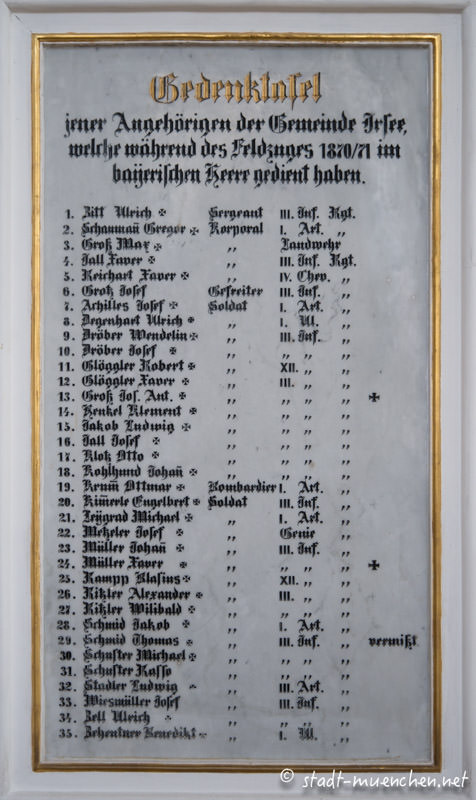 Gedenktafel
jener Angehörigen der Gemeinde Irsee,
welche während des Feldzuges 1870/71 im
bayerischen Heere gedient haben.
1. Zitt Ulrich ✠ Sergeant III. Inf. Rgt.
2. Schauman̄ Gregor ✠ Korporal I. Art. „
3. Groß Max ✠ „ Landwehr
4. Jall Xaver ✠ „ III. Inf. Rgt.
5. Reichart Xaver ✠ „ IV. Chev. „
6. Grotz Josef Gefreiter III. Inf. „
7. Achilles Josef ✠ Soldat I. Art. „
8. Degenhart Ulrich ✠ „ I. Ul. „
9. Dröber Wendelin ✠ „ III. Inf. „
10. Dröber Josef ✠ „ „ „ „
11. Glöggler Robert ✠ „ XII. „ „
12. Glöggler Xaver ✠ „ III. „ „
13. Groß Jos. Ant. ✠ „ „ „ „ ✠
14. Henkel Klement ✠ „ „ „ „
15. Jakob Ludwig ✠ „ „ „ „
16. Jall Josef ✠ „ „ „ „
17. Klotz Otto ✠ „ „ „ „
18. Kohlhund Johan̄ ✠ „ „ „ „
19. Ottmar ✠ Bombardier I. Art. „
20. Kim̄erle Engelbert ✠ Soldat III. Inf. „
21. Michael ✠ „ I. Art. „
22. Metzeler Josef ✠ „ Genie „
23. Müller Johan̄ ✠ „ III. Inf. „
24. Müller Xaver ✠ „ „ „ „ ✠
25. Rampp Blasius ✠ „ XII. „ „
26. Kitzler Alexander ✠ „ III. „ „
27. Kitzler Wilibald ✠ „ „ „ „
28. Schmid Jakob ✠ „ I. Art. „
29. Schmid Thomas ✠ „ III. Inf. „ vermißt
30. Schuster Michael ✠ „ „ „ „
31. Schuster Kasso „ „ „ „
32. Stadler Ludwig ✠ „ III. Art. „
33. Wiesmüller Josef „ III. Inf. „
34. Zell Ulrich ✠ „ „ „ „
35. Zehentner Benedikt ✠ „ I. Ul. „
© stadt-muenchen.net